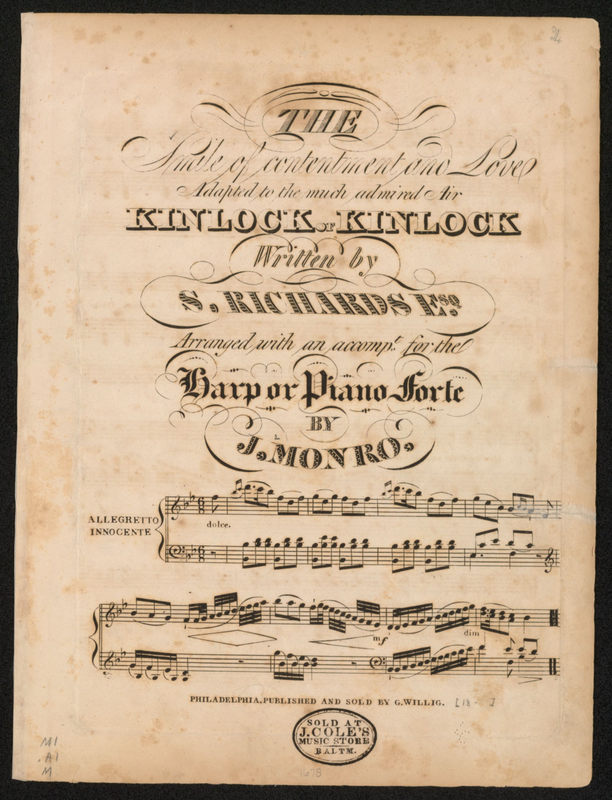 2
THE
Smile of contentment and Love
Adapted to the much admired Air
KINLOCK OF KINLOCK
Written by
S. RICHARDS Esq.
Arranged with an accompt. for the
Harp or Piano Forte
BY
J. MONRO.
ALLEGRETTO
INNOCENTE
dolce.
mf
dim
PHILADELPHIA, PUBLISHED AND SOLD BY G. WILLIG.
SOLD AT
J. COLE'S
MUSIC STORE
BALTM.
M1
.A1
M